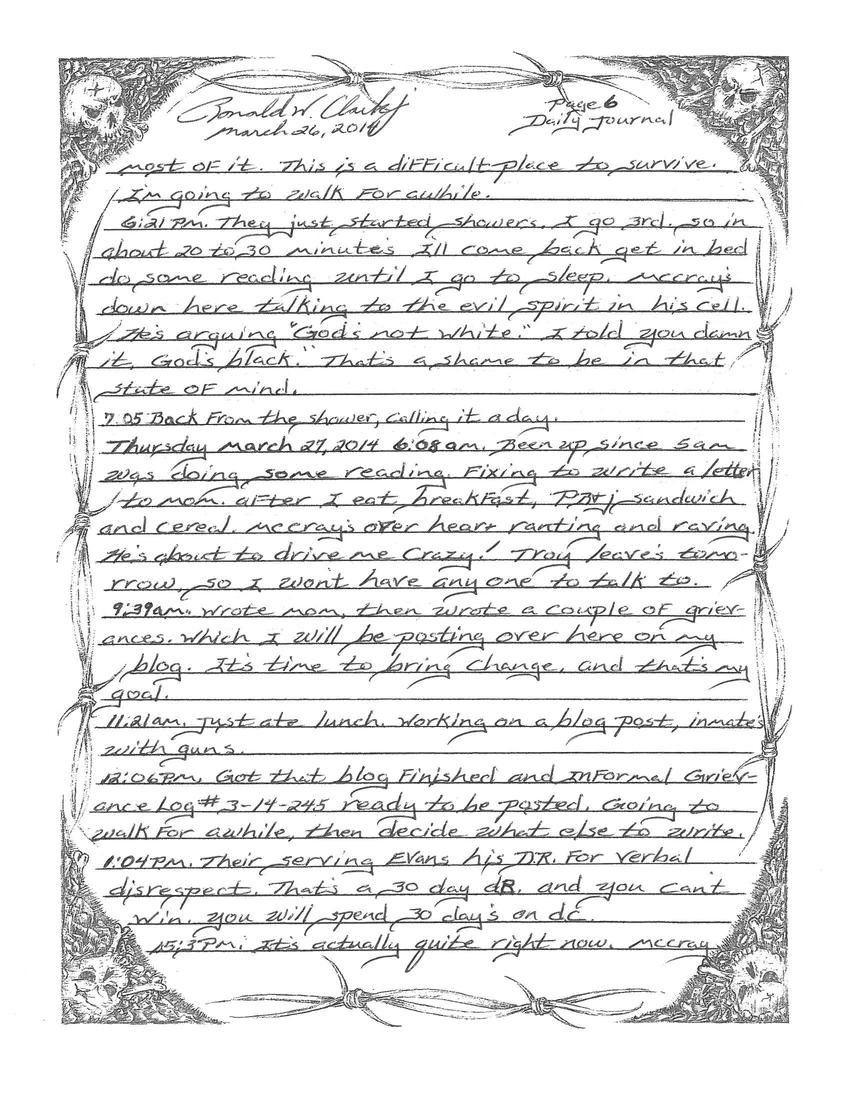 Ronald W. Clark Jr
March 26, 2014
Page 6
Daily Journal
most of it. This is a difficult place to survive.
I'm going to walk for awhile.
6:21 pm. They just started showers, I go 3rd. so in
about 20 to 30 minute's I'll come back get in bed
do some reading until I go to sleep. Mccray's
down here talking to the evil spirit in his cell.
He's arguing "God's not white." I told you damn
it, God's black." That's a shame to be in that
state of mind.
7:05 Back from the shower, calling it a day.
Thursday March 27, 2014 6:08 am. Been up since 5am
was doing some reading. Fixing to write a letter
to mom. after I eat breakfast, PB&j sandwich
and cereal. Mccray's over hear ranting and raving.
He's about to drive me crazy! Troy leave's tomo-
rrow, so I wont have any one to talk to.
9:39am. Wrote mom, then wrote a couple of griev-
ances. Which I will be posting over here on my
blog. It's time to bring change, and that's my
goal.
11:21am. Just ate lunch. Working on a blog post, inmate's
with guns.
12:06 pm. Got that blog finished and Informal Griev-
ance Log# 3-14-245 ready to be posted. Going to
walk for awhile, then decide what else to write.
1:04 pm. Their serving Evans his D.R. for verbal
disrespect. That's a 30 day dR. and you can't
win. you will spend 30 day's on d.c.
It's actually quite right now. Mccray